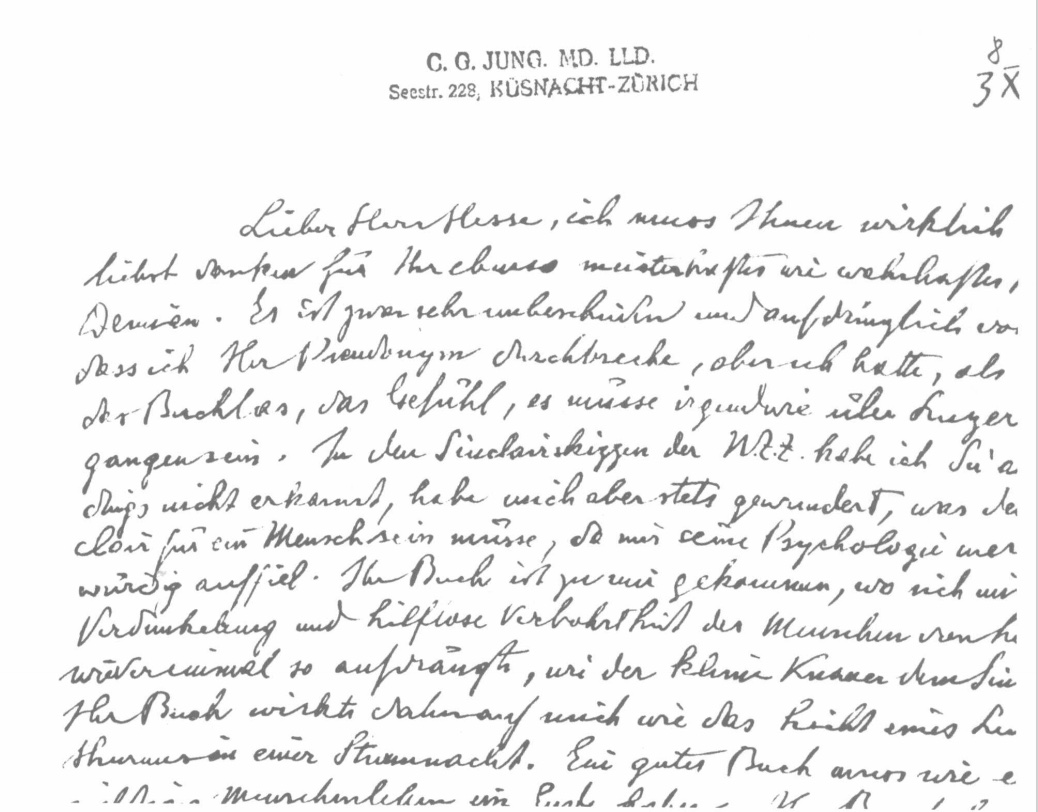 C. G. JUNG. MD. LLD.
Seestr. 228, KÜSNACHT-ZÜRICH
8
3 X
Lieber Herr Hesse, ich muss Ihnen wirklich
danken für Ihr ebenso meisterhaftes wie wahrhaftes,
Demian. Es ist zwar sehr unbescheiden und aufdringlich vo
dass ich Ihr Pseudonym durchbreche, aber ich hatte, als
das Buch las, das Gefühl, es müsse irgendwie über Luzer
gangen sein. In den Sinclairskizzen der N.Z.Z. habe ich Sie a
dings nicht erkannt, habe mich aber stets gewundert, was de
clair für ein Mensch sein müsse, da mir seine Psychologie mer
würdig auffiel. Ihr Buch ist zu mir gekommen, wo sich mi
Verdunkelung und hilflose Verbohrtheit der Menschen
wieder einmal so aufdrängte, wie der kleine Knauer dem Sin
Ihr Buch wirkte daher auf mich wie das Licht eines Leu
thurmes in einer Sturmnacht. Ein gutes Buch muss wie e
Menschenleben ein Ende haben.